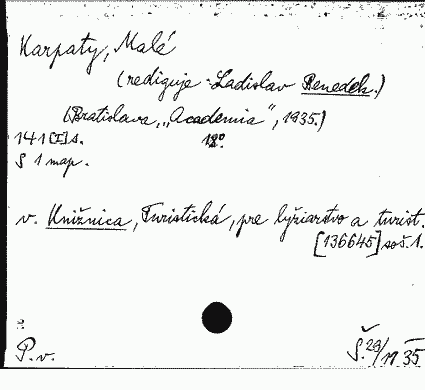 Karpaty, Malé
(rediguje Ladislav Benedek.)
(Bratislava, „Academia", 1935.)
141 [I] s. 18°
S 1 map.
v. Knižnica, Turistická, pre lyžiarstvo a turist.
[136645] soš.1.
P.v.
Š. 29/11 35